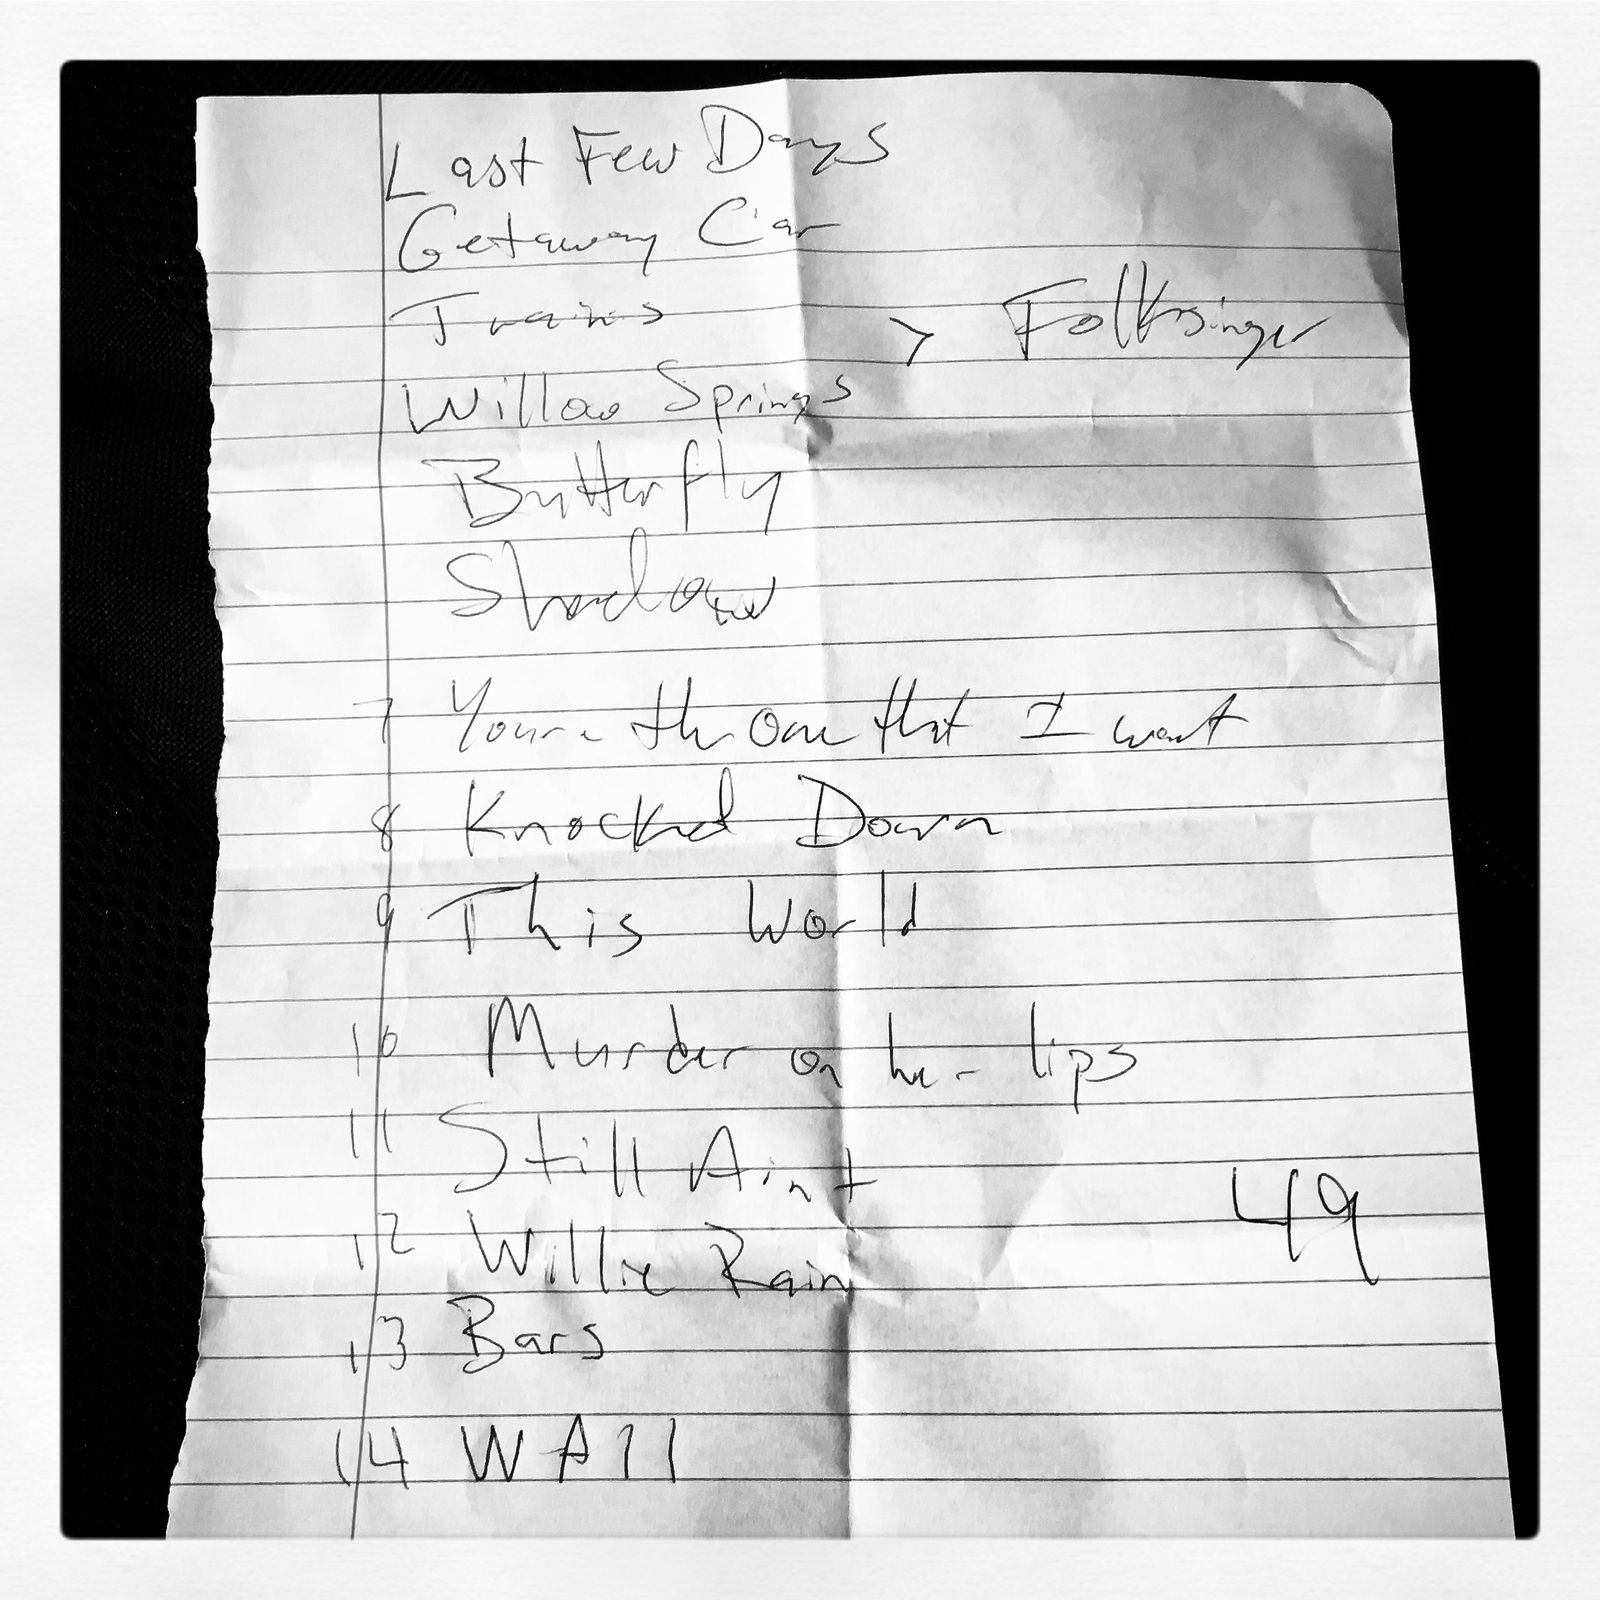 Last Few Days
Getaway Car
Trains
> Folksinger
Willow Springs
Butterfly
Shadow
7 Youre the one that I want
8 Knocked Down
9 This World
10 Murder on her lips
11 Still Aint
49
12 Willie Rain
13 Bars
14 WAll